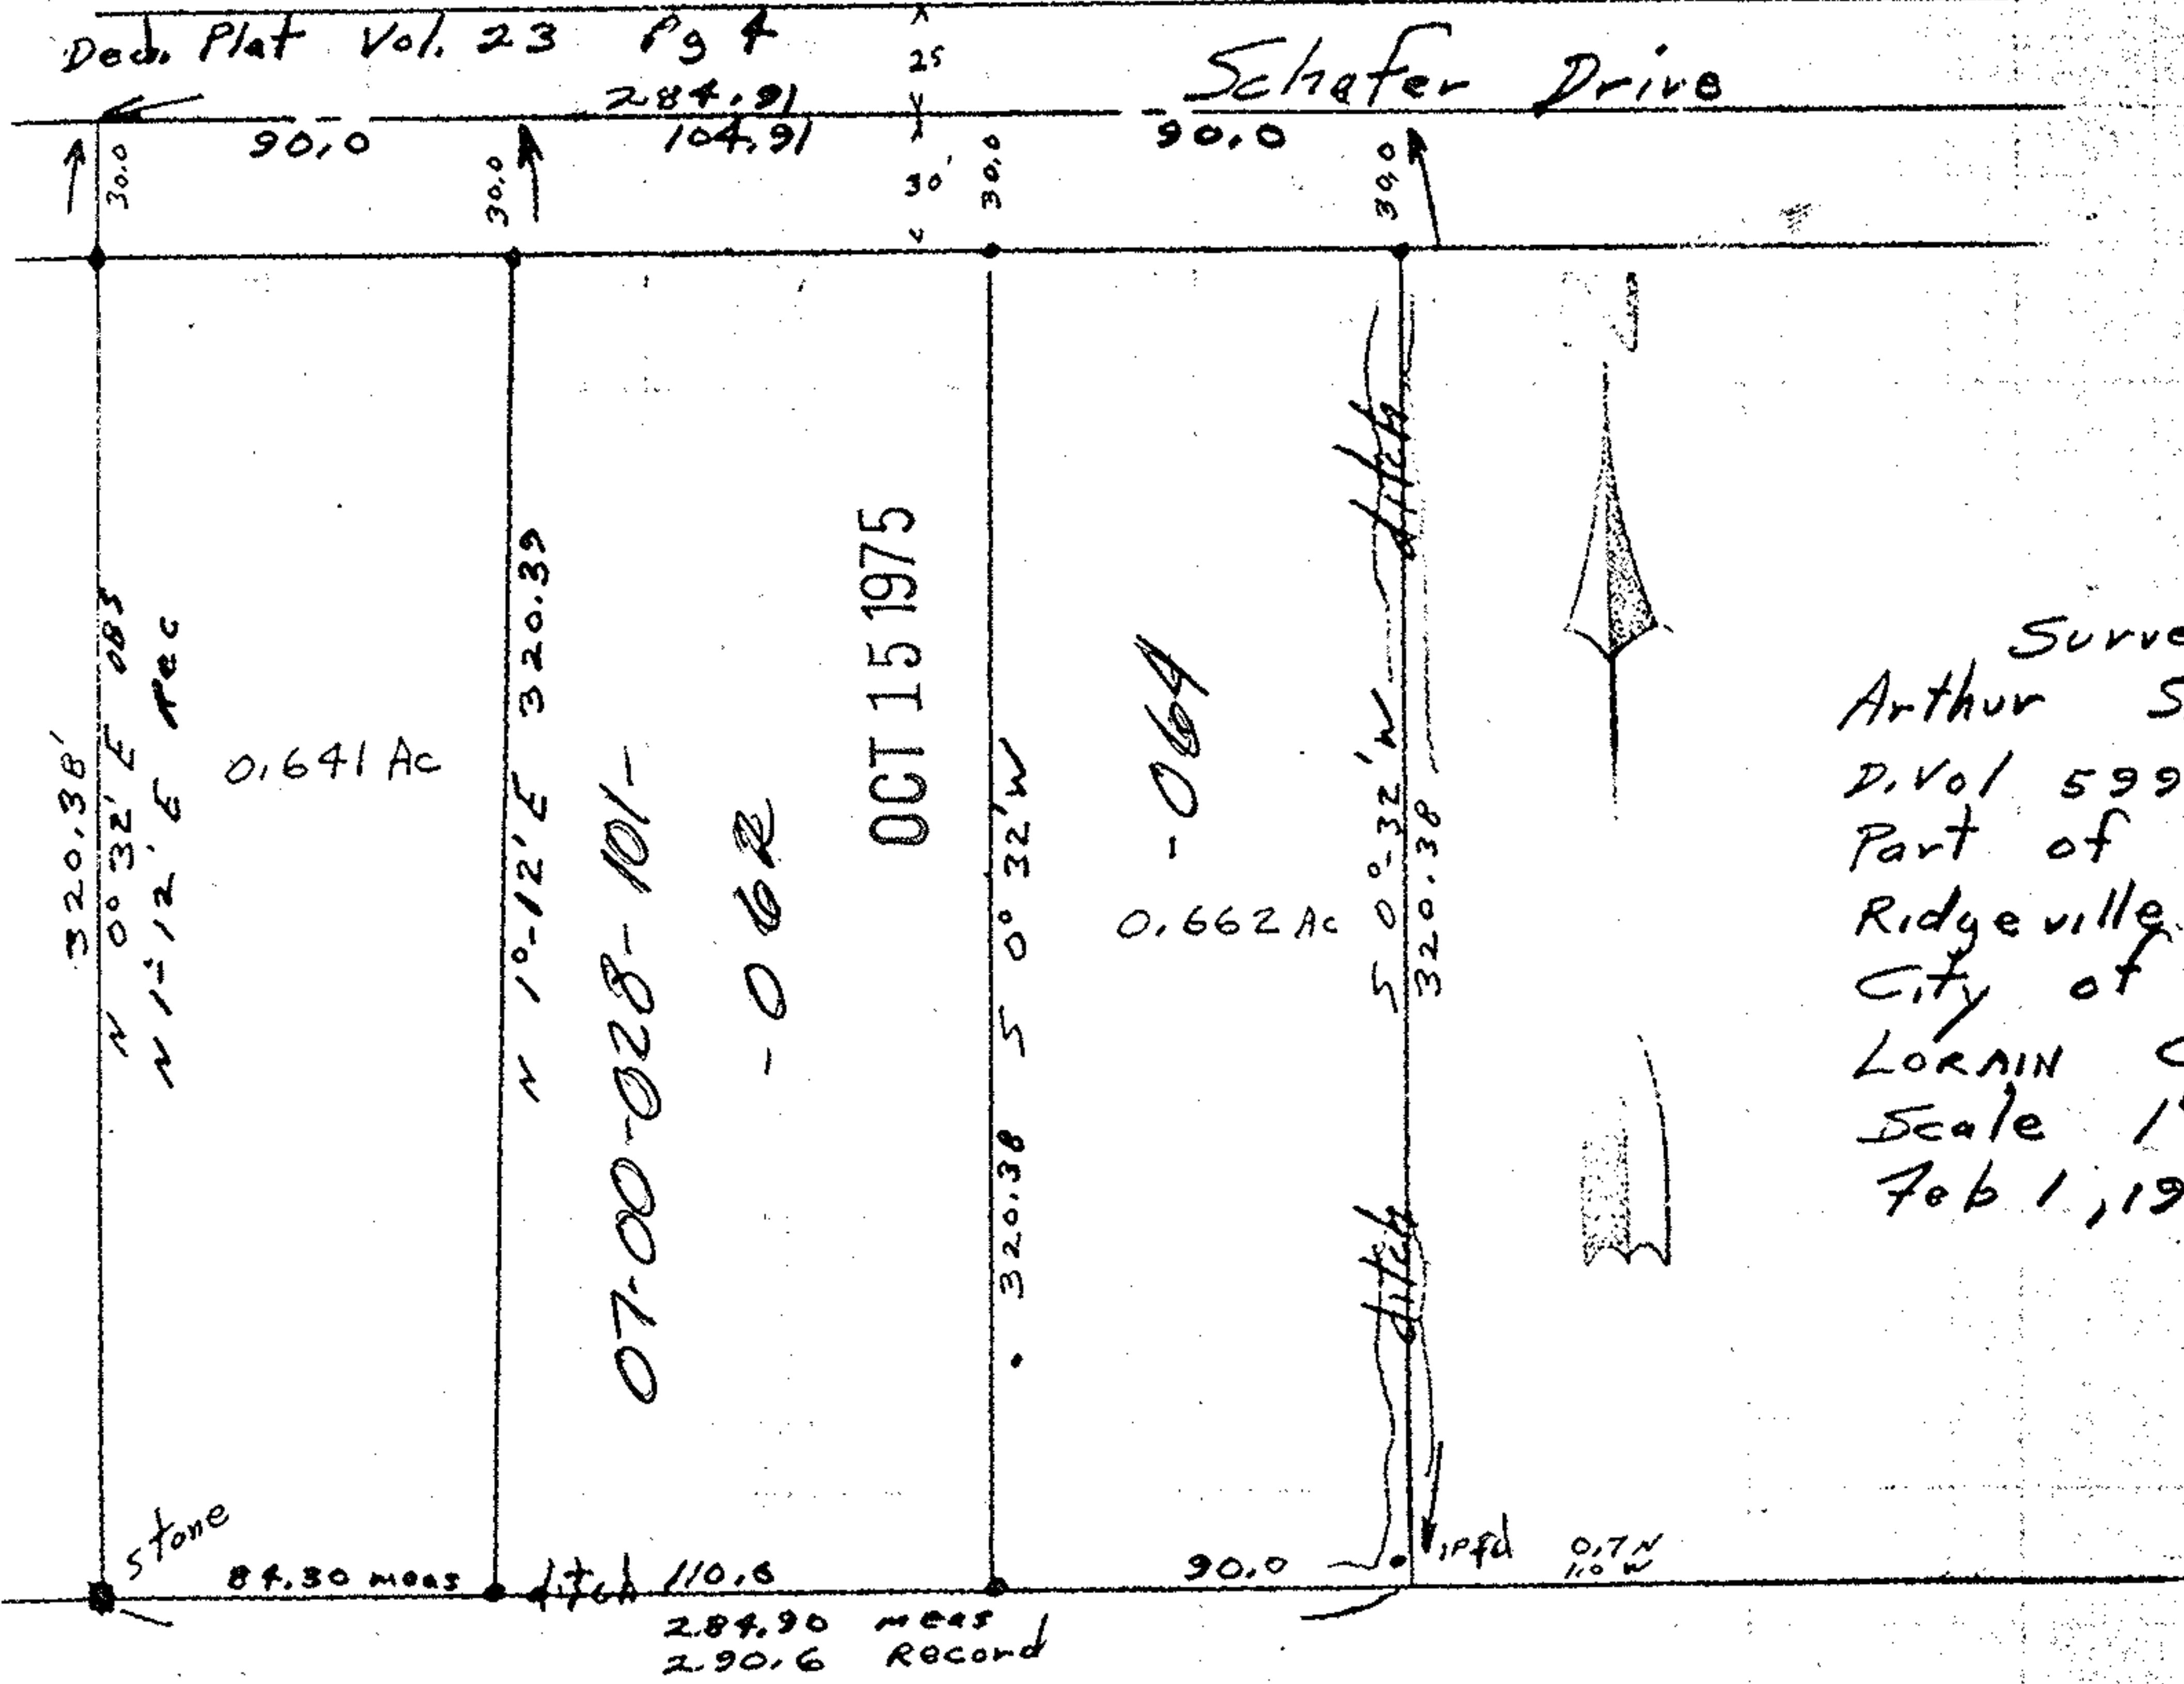 Ded. Plat Vol. 23 Pg 4
25
Schafer Drive
284.91
90.0
104.91
90.0
30.0
30.0
30'
30.0
30.0
320.38'
N 0° 32' E OBS
N 1°-12' E rec
0.641 Ac
N 1°-12' E 320.39
07-00-028-101-
-062
OCT 15 1975
320.38 S 0° 32' W
-064
0.662 Ac
ditch
S 0°-32' W
320.38
ditch
N
Surve
Arthur S
D.Vol 599
Part of
Ridgeville
City of
LORAIN C
Scale 1"
Feb 1, 19
Stone
84.30 meas
ditch
110.6
90.0
ipfd
0.7 N
1.0 W
284.90 meas
290.6 Record